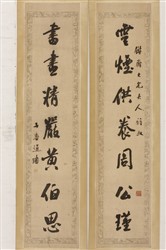 雲煙供養周公瑾
書畫精嚴黄伯思